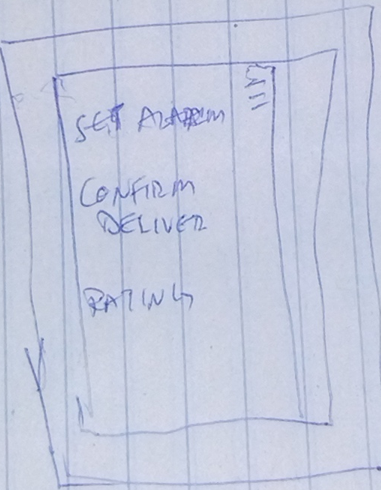 SET ALARM
CONFIRM
DELIVER
RATING